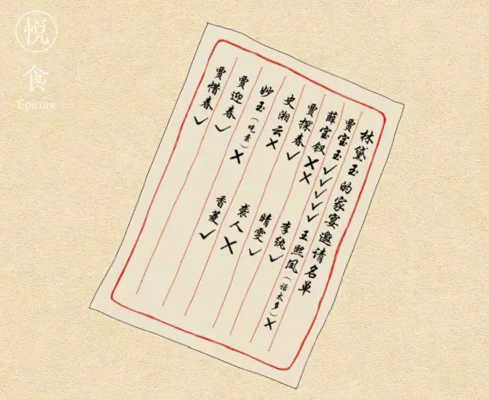 悦
食
Epicure
林黛玉的家宴邀请名单
贾宝玉✓✓✓✓✓ 王熙凤(话太多)✗
薛宝钗✗✗ 李纨✓
贾探春✓ 晴雯✓
史湘云✗ 袭人✗
妙玉(吃素)✗ 香菱✓
贾迎春✓
贾惜春✓